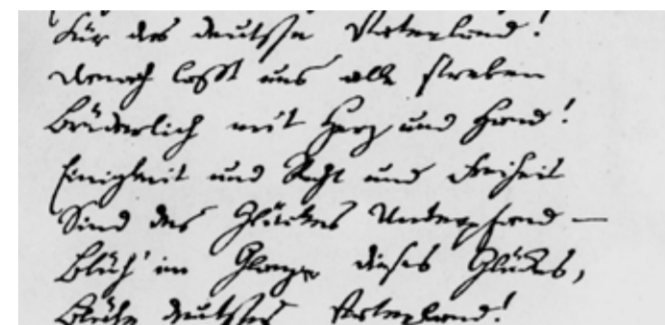 Für das deutsche Vaterland!
Danach laßt uns alle streben
Brüderlich mit Herz und Hand!
Einigkeit und Recht und Freiheit
Sind des Glückes Unterpfand –
Blüh' im Glanze dieses Glückes,
Blühe deutsches Vaterland!